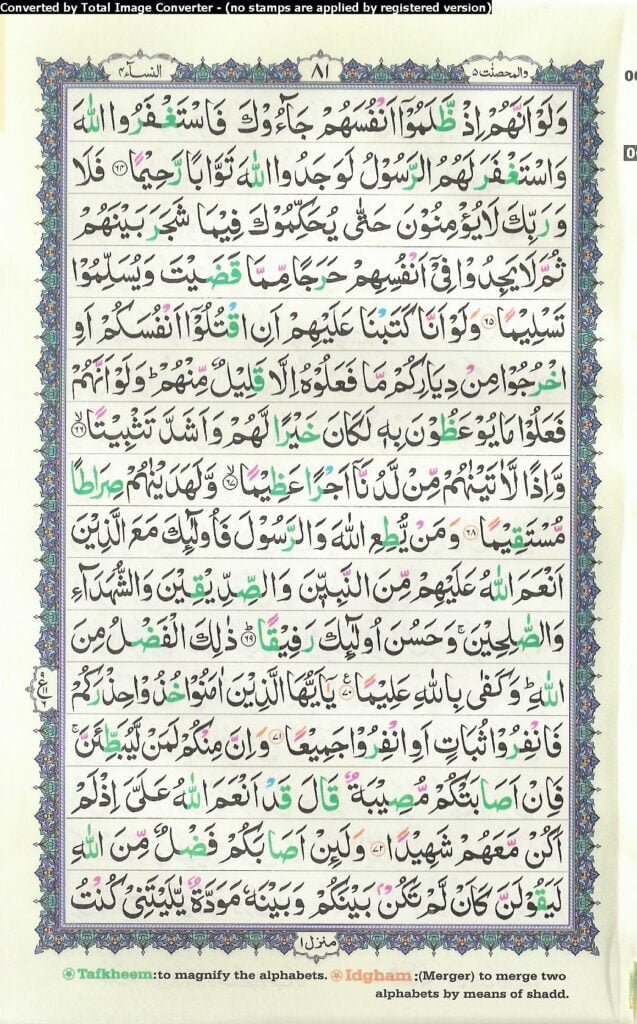 Converted by Total Image Converter - (no stamps are applied by registered version)
النسآء ٤
٨١
والمحصنٰت ٥
وَلَوْ اَنَّهُمْ اِذْ ظَّلَمُوْۤا اَنْفُسَهُمْ جَآءُوْكَ فَاسْتَغْفَرُوا اللّٰهَ
وَاسْتَغْفَرَ لَهُمُ الرَّسُوْلُ لَوَجَدُوا اللّٰهَ تَوَّابًا رَّحِيْمًا ﴿٦٤﴾ فَلَا
وَ رَبِّكَ لَا يُؤْمِنُوْنَ حَتّٰى يُحَكِّمُوْكَ فِيْمَا شَجَرَ بَيْنَهُمْ
ثُمَّ لَا يَجِدُوْا فِيْۤ اَنْفُسِهِمْ حَرَجًا مِّمَّا قَضَيْتَ وَيُسَلِّمُوْا
تَسْلِيْمًا ﴿٦٥﴾ وَلَوْ اَنَّا كَتَبْنَا عَلَيْهِمْ اَنِ اقْتُلُوْۤا اَنْفُسَكُمْ اَوِ
اخْرُجُوْا مِنْ دِيَارِكُمْ مَّا فَعَلُوْهُ اِلَّا قَلِيْلٌ مِّنْهُمْ ؕ وَلَوْ اَنَّهُمْ
فَعَلُوْا مَا يُوْعَظُوْنَ بِهٖ لَكَانَ خَيْرًا لَّهُمْ وَاَشَدَّ تَثْبِيْتًا ﴿٦٦﴾ ۙ
وَّاِذًا لَّاٰتَيْنٰهُمْ مِّنْ لَّدُنَّاۤ اَجْرًا عَظِيْمًا ﴿٦٧﴾ ۙ وَّلَهَدَيْنٰهُمْ صِرَاطًا
مُّسْتَقِيْمًا ﴿٦٨﴾ وَمَنْ يُّطِعِ اللّٰهَ وَالرَّسُوْلَ فَاُولٰٓئِكَ مَعَ الَّذِيْنَ
اَنْعَمَ اللّٰهُ عَلَيْهِمْ مِّنَ النَّبِيّٖنَ وَالصِّدِّيْقِيْنَ وَالشُّهَدَآءِ
وَالصّٰلِحِيْنَ ۚ وَحَسُنَ اُولٰٓئِكَ رَفِيْقًا ﴿٦٩﴾ ؕ ذٰلِكَ الْفَضْلُ مِنَ
اللّٰهِ ؕ وَكَفٰى بِاللّٰهِ عَلِيْمًا ﴿٧٠﴾ ۧ يٰۤاَيُّهَا الَّذِيْنَ اٰمَنُوْا خُذُوْا حِذْرَكُمْ
فَانْفِرُوْا ثُبَاتٍ اَوِ انْفِرُوْا جَمِيْعًا ﴿٧١﴾ وَاِنَّ مِنْكُمْ لَمَنْ لَّيُبَطِّئَنَّ ۚ
فَاِنْ اَصَابَتْكُمْ مُّصِيْبَةٌ قَالَ قَدْ اَنْعَمَ اللّٰهُ عَلَيَّ اِذْ لَمْ
اَكُنْ مَّعَهُمْ شَهِيْدًا ﴿٧٢﴾ وَلَئِنْ اَصَابَكُمْ فَضْلٌ مِّنَ اللّٰهِ
لَيَقُوْلَنَّ كَاَنْ لَّمْ تَكُنْۢ بَيْنَكُمْ وَبَيْنَهٗ مَوَدَّةٌ يّٰلَيْتَنِيْ كُنْتُ
منزل ١
Tafkheem:to magnify the alphabets. Idgham :(Merger) to merge two
alphabets by means of shadd.